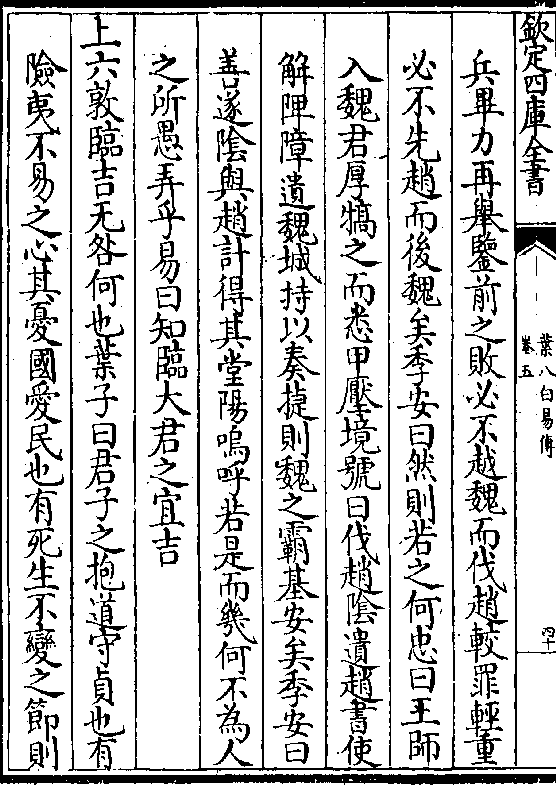 欽定四庫全書
葉八白易傳
卷五
四十
兵畢力再舉鑒前之敗必不越魏而伐趙較罪輕重
必不先趙而後魏矣季安曰然則若之何忠曰王師
入魏君厚犒之而悉甲壓境號曰伐趙陰遺趙書使
解陴障遺魏城持以奏捷則魏之霸基安矣季安曰
善遂陰與趙計得其堂陽嗚呼若是而幾何不為人
之所愚弄乎易曰知臨大君之宜吉
上六敦臨吉无咎何也葉子曰君子之抱道守貞也有
險夷不易之心其憂國愛民也有死生不變之節則